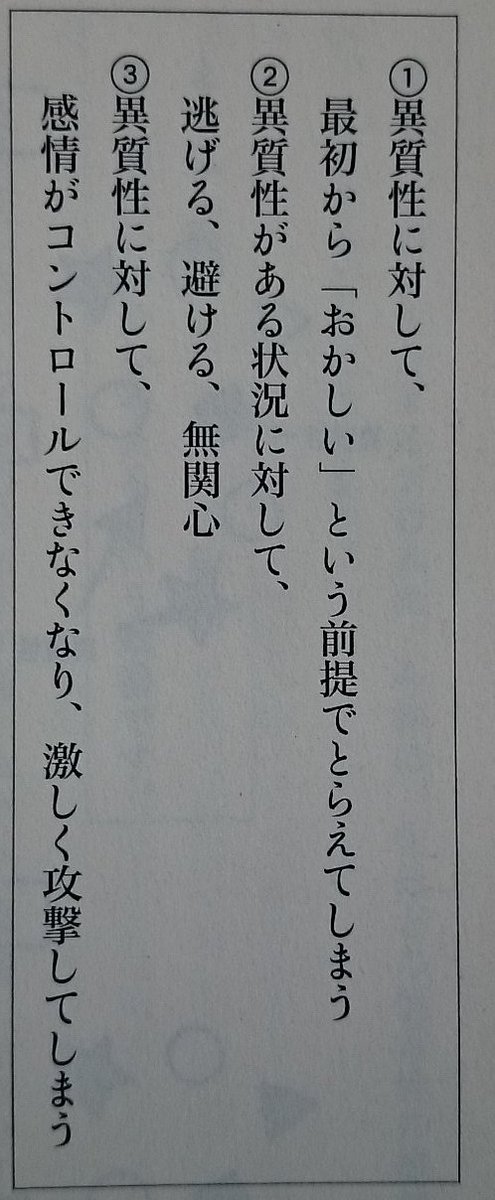 ①異質性に対して、
最初から「おかしい」という前提でとらえてしまう
②異質性がある状況に対して、
逃げる、避ける、無関心
③異質性に対して、
感情がコントロールできなくなり、激しく攻撃してしまう